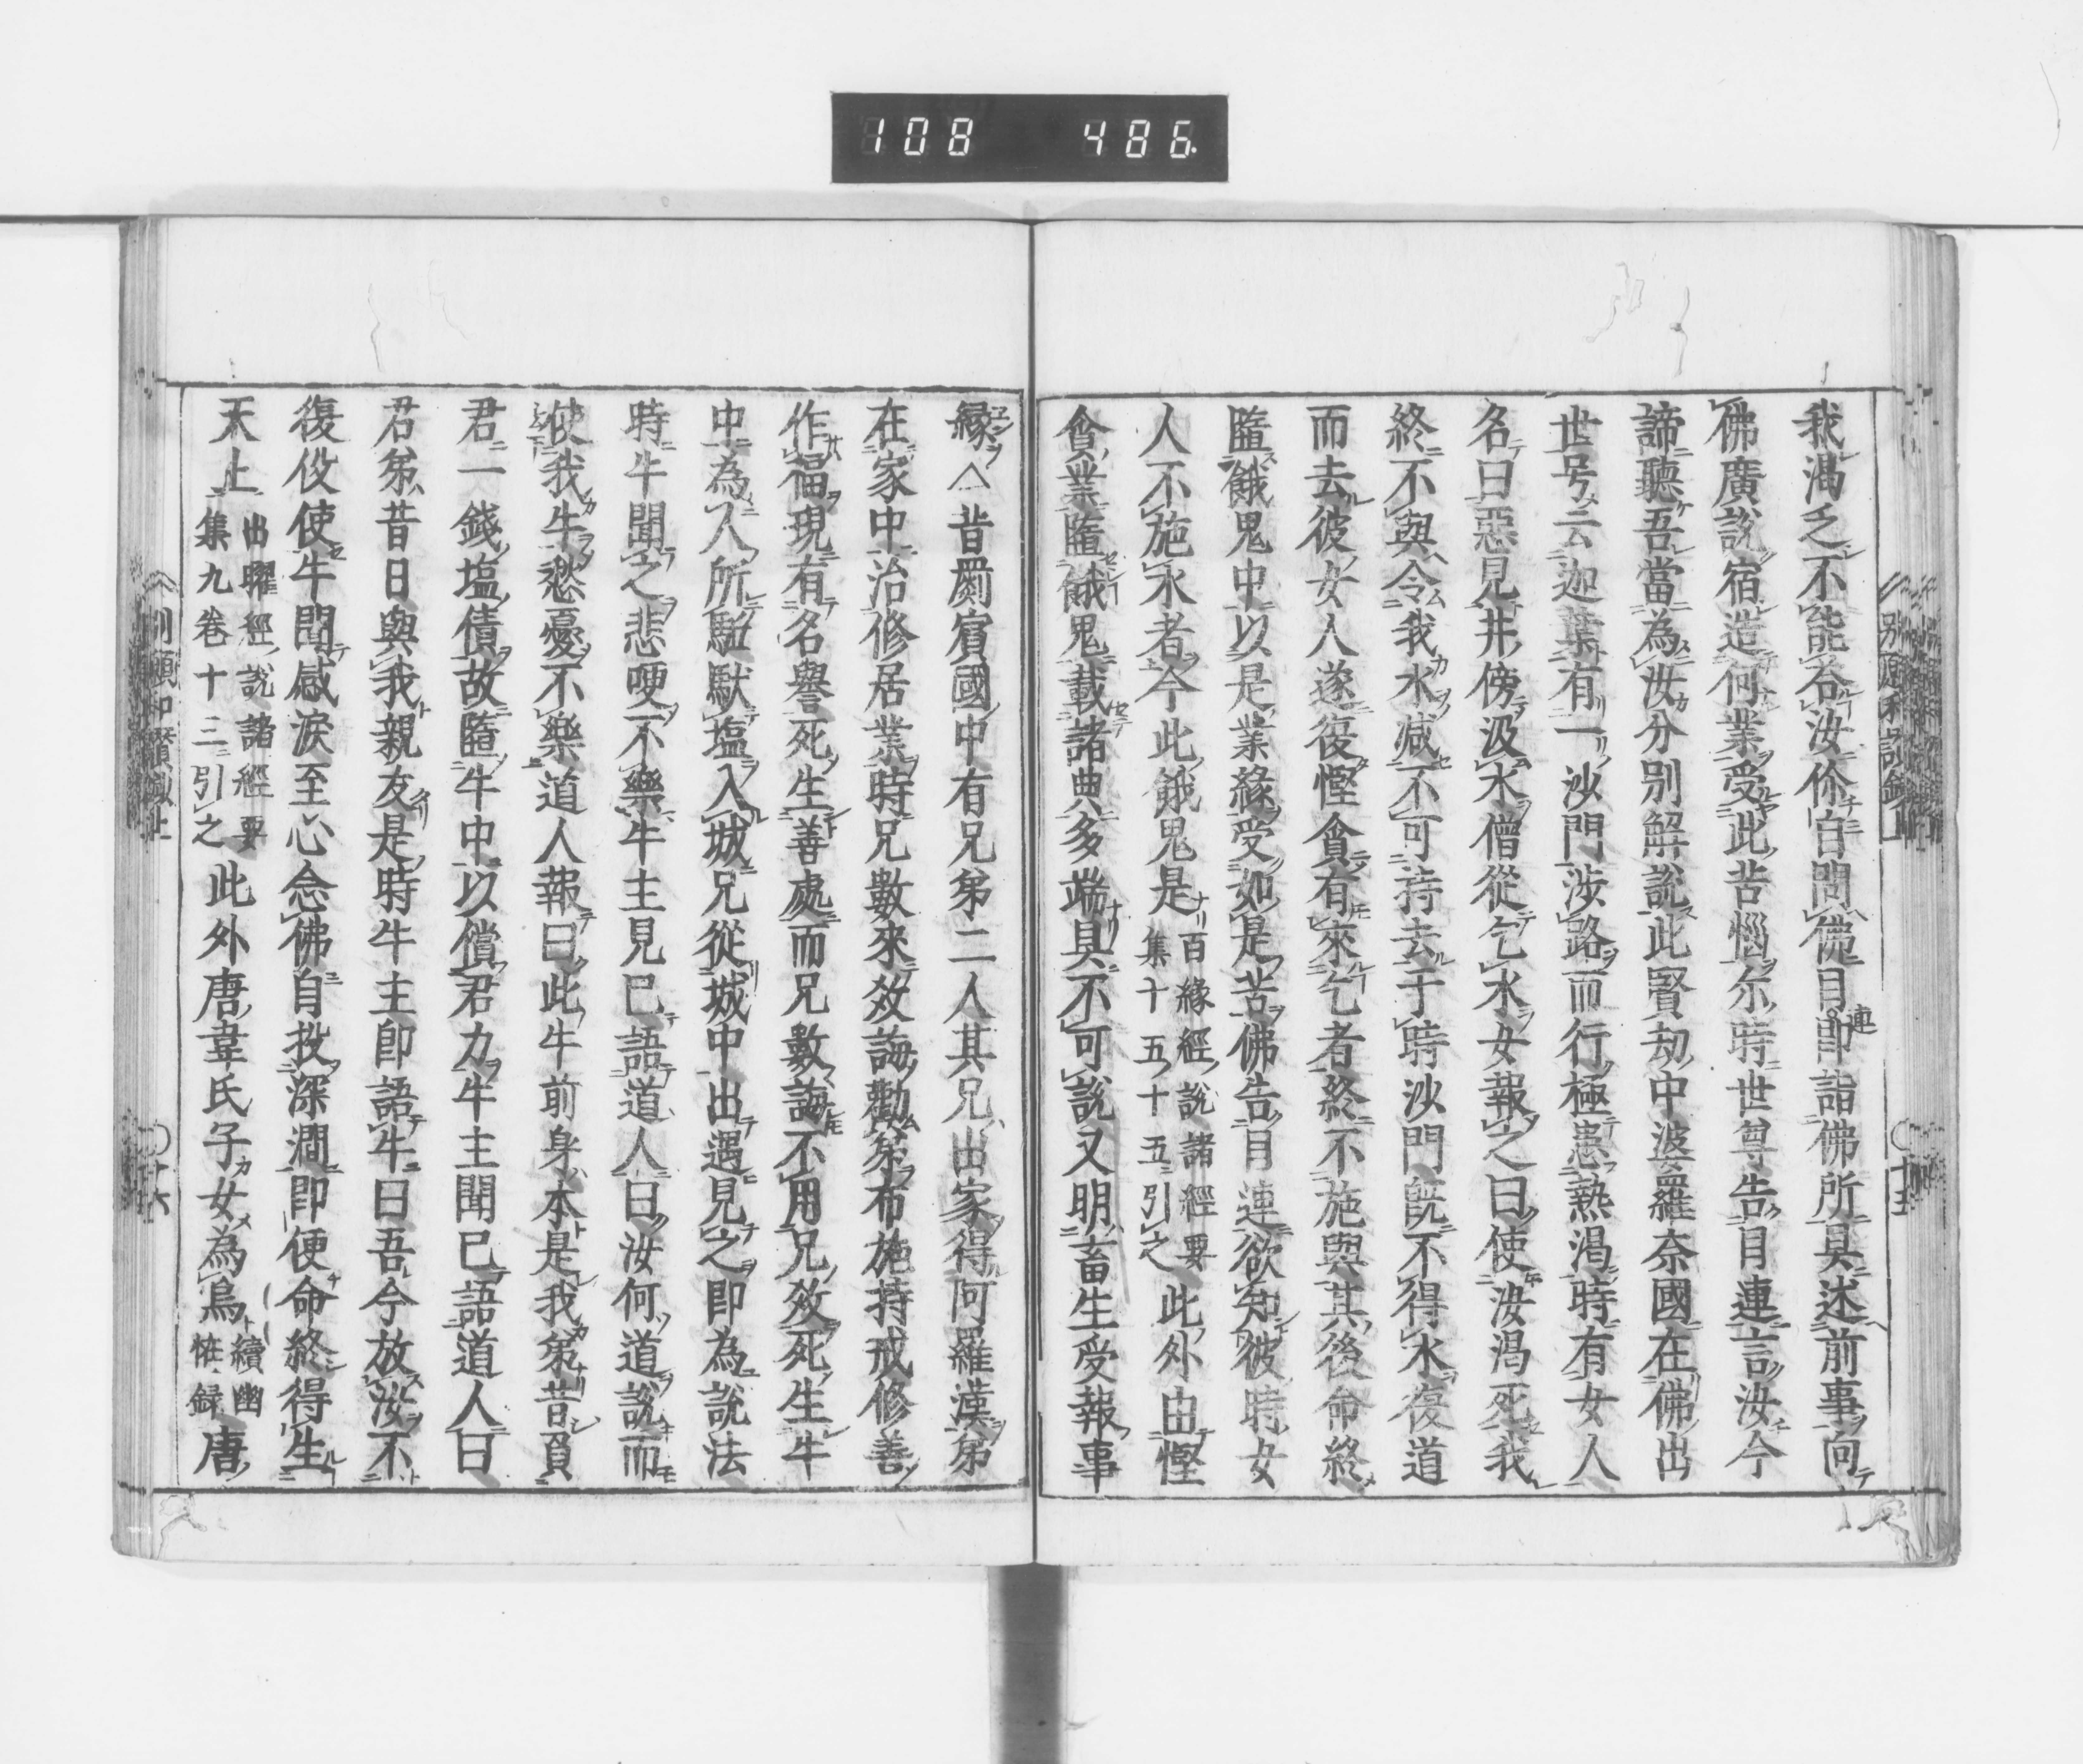 108 486
我渴乏不能答汝伱自問佛目連即詣佛所具述前事向
佛廣說宿造何業受此苦惱尓時世尊告目連言汝今
諦聽吾當為汝分別解說此賢劫中波羅奈國在佛出
世号云迦葉有一沙門渉路而行極患熱渴時有女人
名曰惡見井傍汲水僧從乞水女報之曰使汝渴死我
終不與令我水減不可持去于時沙門旣不得水復道
而去彼女人遂復慳貪有來乞者終不施與其後命終
墮餓鬼中以是業緣受如是苦佛告目連欲知彼時女
人不施水者今此餓鬼是百緣經說諸經要集十五十五引之此外由慳
貪業墮餓鬼載諸典多端具不可說又明畜生受報事
緣△昔罽賓國中有兄弟二人其兄出家得阿羅漢弟
在家中治修居業時兄數來效誨勸弟布施持戒修善
作福現有名譽死生善處而兄數誨不用兄效死生牛
中為人所駈馱塩入城兄從城中出遇見之即為說法
時牛聞之悲哽不樂牛主見已語道人曰汝何道說而
使我牛愁憂不樂道人報曰此牛前身本是我弟昔負
君一錢塩債故墮牛中以償君力牛主聞已語道人曰
君弟昔日與我親友是時牛主即語牛曰吾今放汝不
復伇使牛聞感淚至心念佛自投深澗即便命終得生
天上出曜經說諸經要集九卷十三引之此外唐韋氏子女為烏續幽恠録唐
十六